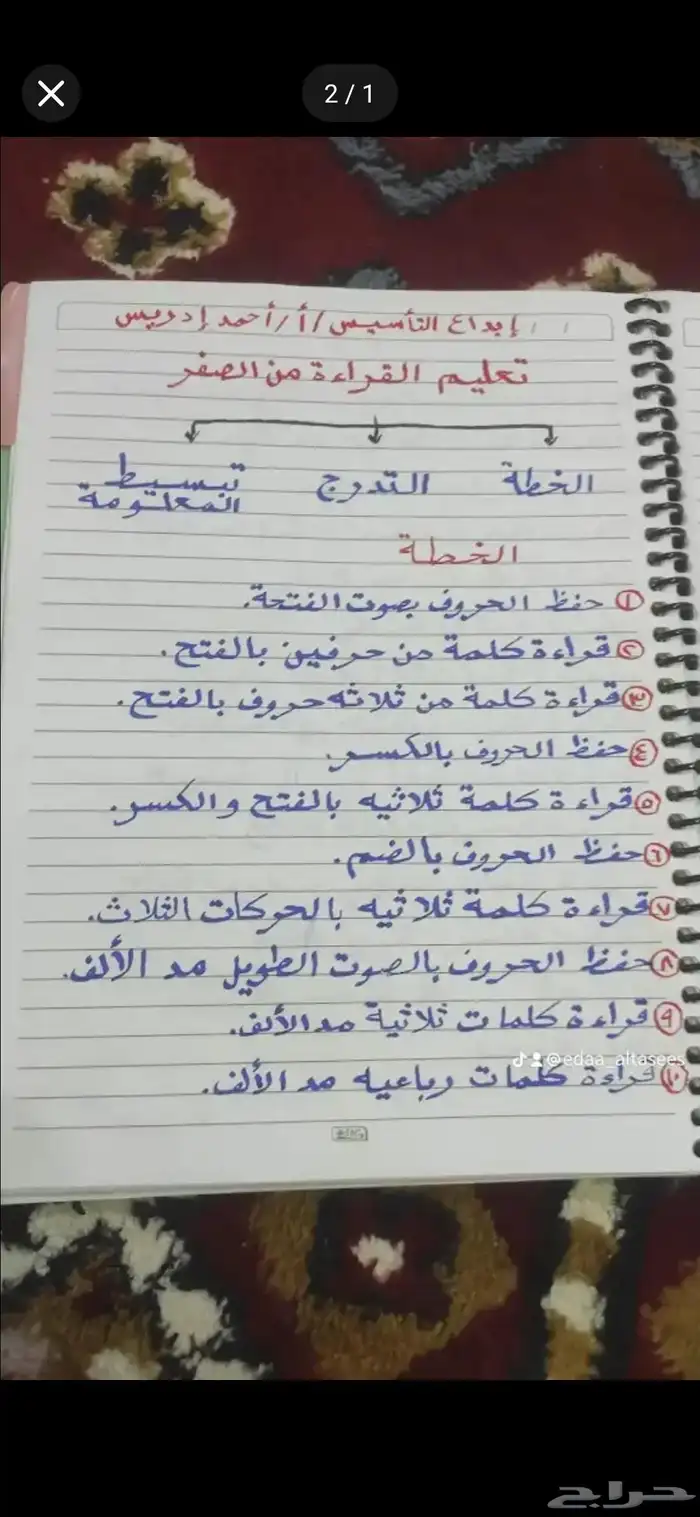 2 / 1
إبداع التأسيس / أ / أحمد إدريس
تعليم القراءة من الصفر
الخطة التدرج تبسيط
المعلومة
الخطة
١ حفظ الحروف بصوت الفتحة.
٢ قراءة كلمة من حرفين بالفتح.
٣ قراءة كلمة من ثلاثه حروف بالفتح.
٤ حفظ الحروف بالكسر.
٥ قراءة كلمة ثلاثيه بالفتح والكسر.
٦ حفظ الحروف بالضم.
٧ قراءة كلمة ثلاثيه بالحركات الثلاث.
٨ حفظ الحروف بالصوت الطويل مد الألف.
٩ قراءة كلمات ثلاثية مد الألف.
@edaa_altasees
١٠ قراءة كلمات رباعيه مد الألف.
حراج